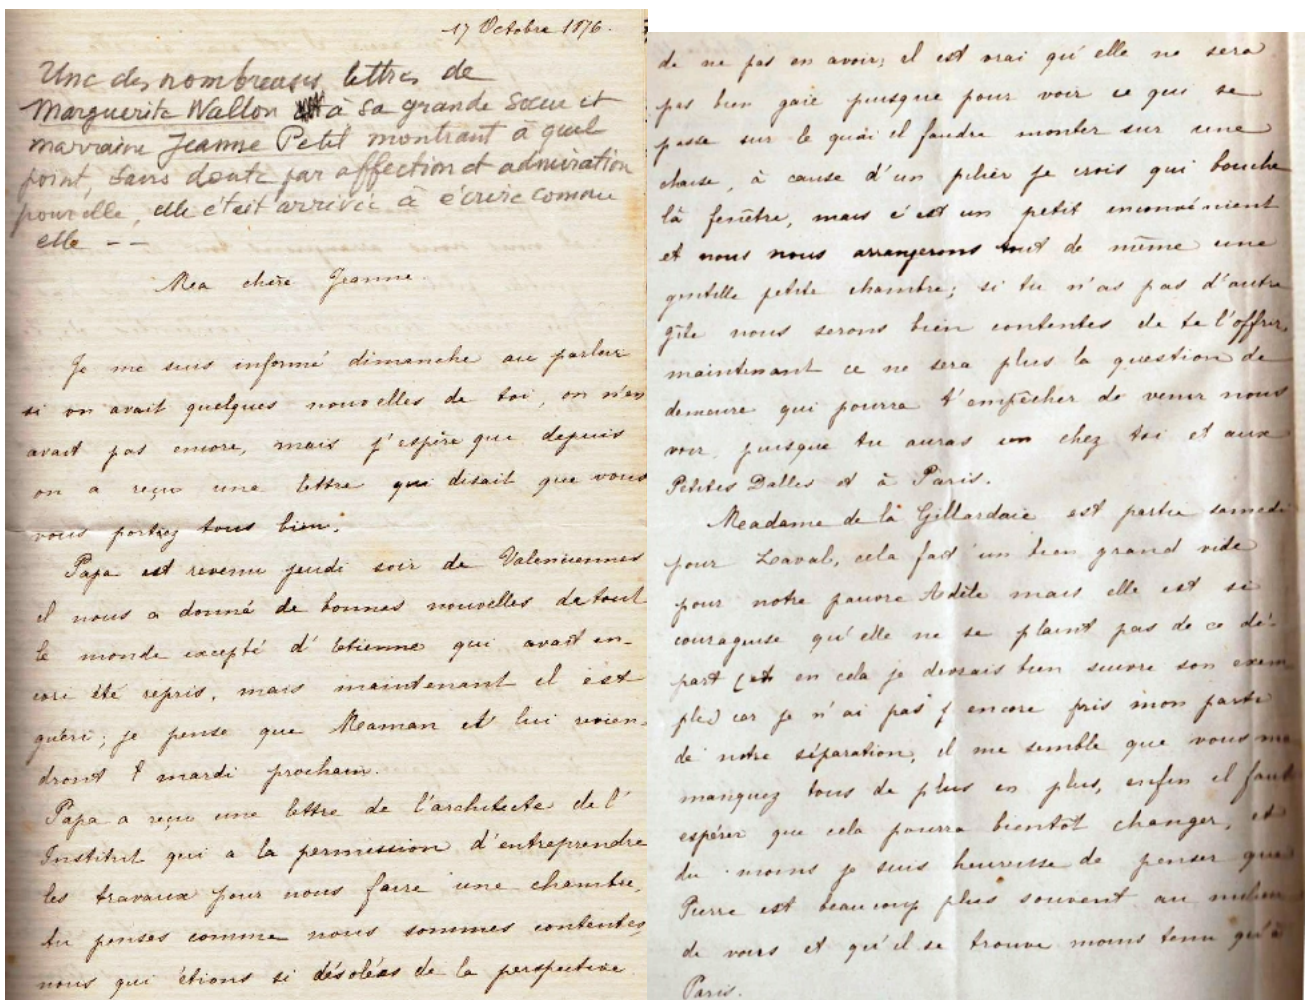 17 Octobre 1876.
Une des nombreuses lettres de
Marguerite Wallon à sa grande sœur et
marraine Jeanne Petit montrant à quel
point, sans doute par affection et admiration
pour elle, elle était arrivée à écrire comme
elle - -
Ma chère Jeanne.
Je me suis informé dimanche au parloir
si on avait quelques nouvelles de toi, on n'en
avait pas encore, mais j'espère que depuis
on a reçu une lettre qui disait que vous
vous portiez tous bien.
Papa est revenu jeudi soir de Valenciennes
il nous a donné de bonnes nouvelles de tout
le monde excepté d'Etienne qui avait en-
core été repris, mais maintenant il est
guéri; je pense que Maman et lui revien-
dront mardi prochain.
Papa a reçu une lettre de l'architecte de l'
Institut qui a la permission d'entreprendre
les travaux pour nous faire une chambre,
tu penses comme nous sommes contentes,
nous qui étions si désolées de la perspective
de ne pas en avoir; il est vrai qu'elle ne sera
pas bien gaie puisque pour voir ce qui se
passe sur le quai il faudra monter sur une
chaise, à cause d'un pilier je crois qui bouche
la fenêtre, mais c'est un petit inconvénient
et nous nous arrangerons tout de même une
gentille petite chambre; si tu n'as pas d'autre
gîte nous serons bien contentes de te l'offrir,
maintenant ce ne sera plus la question de
demeure qui pourra t'empêcher de venir nous
voir, puisque tu auras un chez toi et aux
Petites Dalles et à Paris.
Madame de la Gillardaie est partie samedi
pour Laval, cela fait un bien grand vide
pour notre pauvre Adèle mais elle est si
courageuse qu'elle ne se plaint pas de ce dé-
part (et en cela je devrais bien suivre son exem
ple) car je n'ai pas encore pris mon parti
de notre séparation, il me semble que vous me
manquez tous de plus en plus, enfin il faut
espérer que cela pourra bientôt changer, et
du moins je suis heureuse de penser que
Pierre est beaucoup plus souvent au milieu
de vous et qu'il se trouve moins tenu qu'à
Paris.